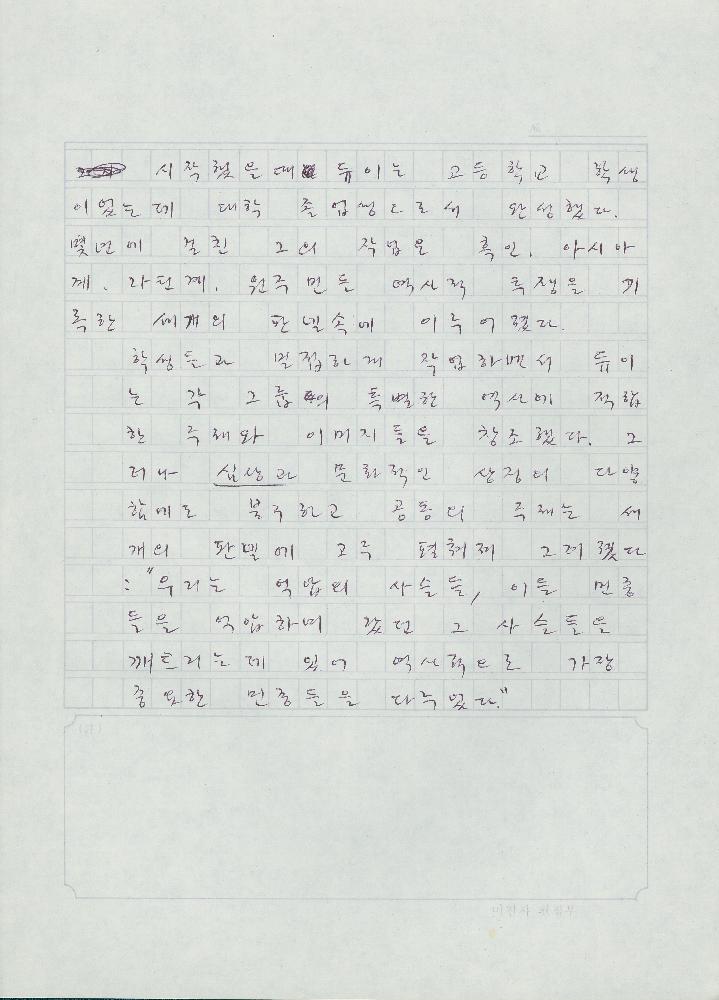 시작했을때 듀이는 고등학교 학생
이었는데 대학 졸업생으로서 완성했다.
몇년에 걸친 그의 작업은 흑인, 아시아
계, 라틴계, 원주민등 역사적 투쟁을 기
록한 세개의 판넬속에 이루어졌다.
학생들과 밀접하게 작업하면서 듀이
는 각 그룹의 특별한 역사에 적합
한 주제와 이미지들을 창조했다. 그
러나 심상과 문화적인 상징의 다양
함에도 불구하고 공동의 주제는 세
개의 판넬에 고루 펼쳐져 그려졌다
: "우리는 억압의 사슬들, 이들 민중
들을 억압하며 잡던 그 사슬들을
깨트리는데 있어 역사적으로 가장
중요한 민중들을 다루었다."